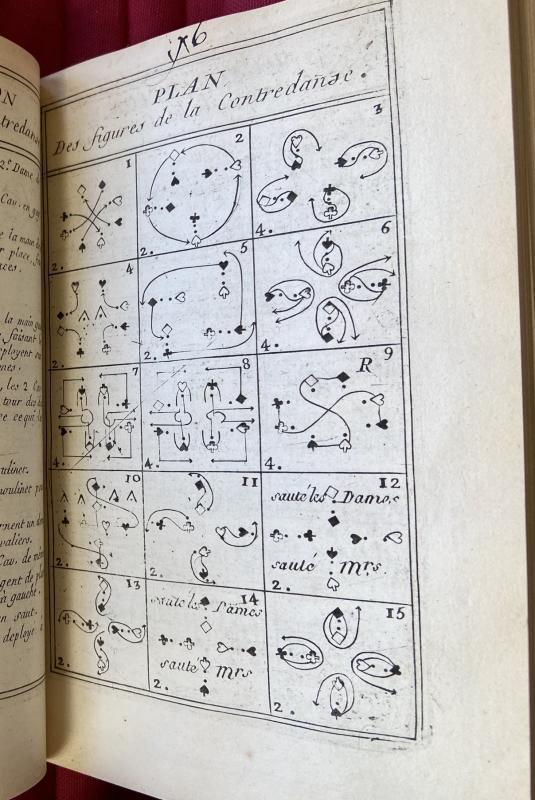 176
PLAN
Des figures de la Contredanse.
1
2.
2
2.
3
4.
4
2.
5
2.
6
4.
7
4.
8
4.
R 9
4.
10
2.
11
2.
12
sauté les Dames
sauté Mrs.
2.
13
2.
14
sauté les Dames
sauté Mrs
2.
15
2.
ON
2.e Dame
Cav. en
la main
place,
la main
faisant
deployent
les 2
tour des
ce qui
moulinet.
moulinet
un
Cav. de
à gauche.
en saut.
deploye